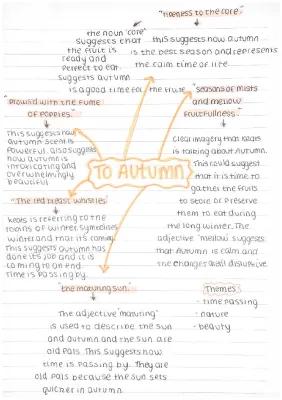 "ripeness to the core"
the noun 'core'
suggests that
the fruit is
ready and
perfect to eat.
suggests autumn
is a good time for the fruit
this suggests how autumn
is the best season and represents
the calm time of life
"Drows'd with the fume
of poppies"
This suggests how
autumn scent is
Powerful. also suggests
how autumn is
intoxicating and
overwhelmingly
beautiful
"seasons of mists
and mellow
fruitfulness"
Clear imagery that Keats
is talking about Autumn.
This could suggest
that it is time to
gather the fruits
to store or preserve
them to eat during
the long winter. The
adjective 'mellow' suggests
that Autumn is calm and
the changes
To Autumn
"The red breast whistles"
Keats is referring to the
robins of winter. symbolises
winter and that it's coming.
This suggests Autumn has
done its job and it is
coming to an end.
Time is passing by.
"the maturing sun"
The adjective 'maturing'
is used to describe the sun
and autumn and the sun are
old pals. This suggests how
time is passing by. They are
old pals because the sun sets
quicker in autumn.
Themes
- time passing
- nature
- beauty